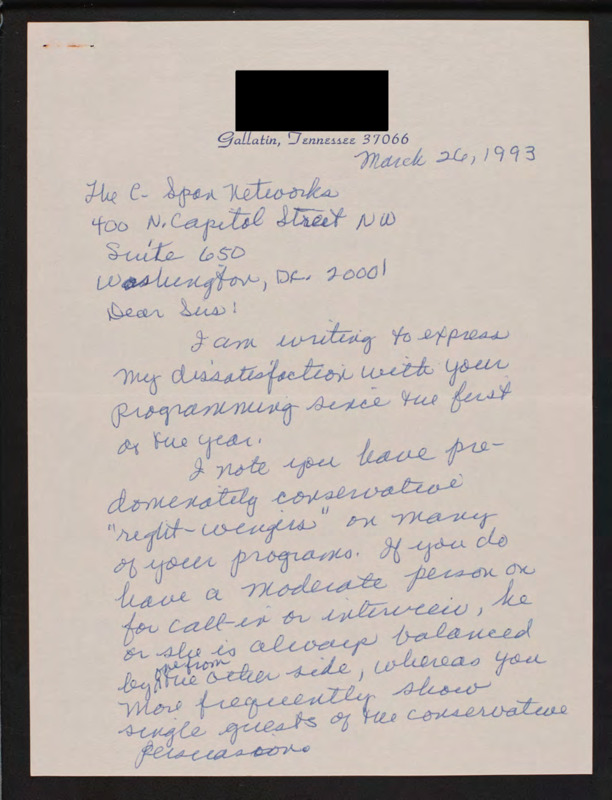 Gallatin, Tennessee 37066
March 26, 1993
The C-Span Networks
400 N. Capitol Street NW
Suite 650
Washington, DC. 20001
Dear Sirs:
I am writing to express
my dissatisfaction with your
programming since the first
of the year.
I note you have pre-
dominately conservative
"right-wingers" on many
of your programs. If you do
have a moderate person on
for call-in or interview, he
or she is always balanced
by one from the other side, whereas you
more frequently show
single guests of the conservative
persuasion.